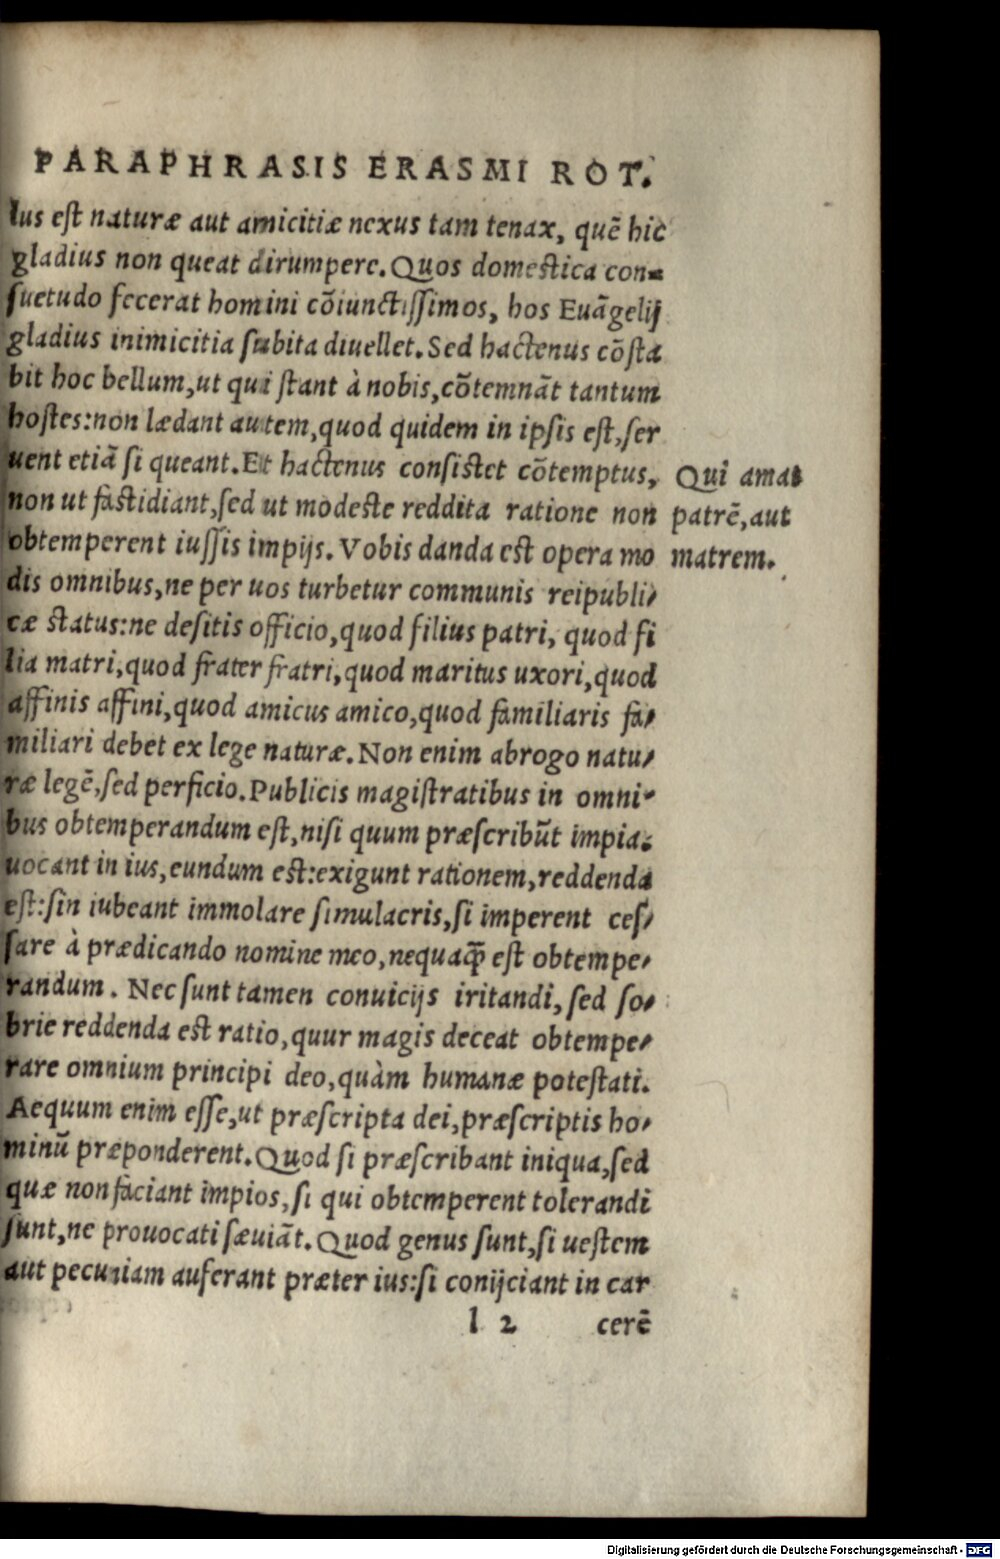 PARAPHRASIS ERASMI ROT.
lus eſt naturæ aut amicitiæ nexus tam tenax, quē hic
gladius non queat dirumpere. Quos domeſtica con-
ſuetudo fecerat homini cōiunctiſſimos, hos Euāgelij
gladius inimicitia ſubita diuellet. Sed hactenus cōſta
bit hoc bellum, ut qui ſtant à nobis, cōtemnāt tantum
hoſtes: non lædant autem, quod quidem in ipſis eſt, ſer
uent etiā ſi queant. Et hactenus conſiſtet cōtemptus,
non ut faſtidiant, ſed ut modeſte reddita ratione non
obtemperent iuſſis impijs. Vobis danda eſt opera mo
Qui amat
patrē, aut
matrem.
dis omnibus, ne per uos turbetur communis reipubli-
cæ ſtatus: ne deſitis officio, quod filius patri, quod fi
lia matri, quod frater fratri, quod maritus uxori, quod
affinis affini, quod amicus amico, quod familiaris fa-
miliari debet ex lege naturæ. Non enim abrogo natu-
ræ legē, ſed perficio. Publicis magiſtratibus in omni-
bus obtemperandum eſt, niſi quum præſcribūt impia:
uocant in ius, eundum eſt: exigunt rationem, reddenda
eſt: ſin iubeant immolare ſimulacris, ſi imperent ceſ-
ſare à prædicando nomine meo, nequaꝙ̃ eſt obtempe-
randum. Nec ſunt tamen conuicijs iritandi, ſed ſo-
brie reddenda eſt ratio, quur magis deceat obtempe-
rare omnium principi deo, quàm humanæ poteſtati.
Aequum enim eſſe, ut præſcripta dei, præſcriptis ho-
minū præponderent. Quod ſi præſcribant iniqua, ſed
quæ non faciant impios, ſi qui obtemperent tolerandi
ſunt, ne prouocati ſæuiāt. Quod genus ſunt, ſi ueſtem
aut pecuniam auferant præter ius: ſi conijciant in car
l 2 cerē
Digitalisierung gefördert durch die Deutsche Forschungsgemeinschaft - DFG